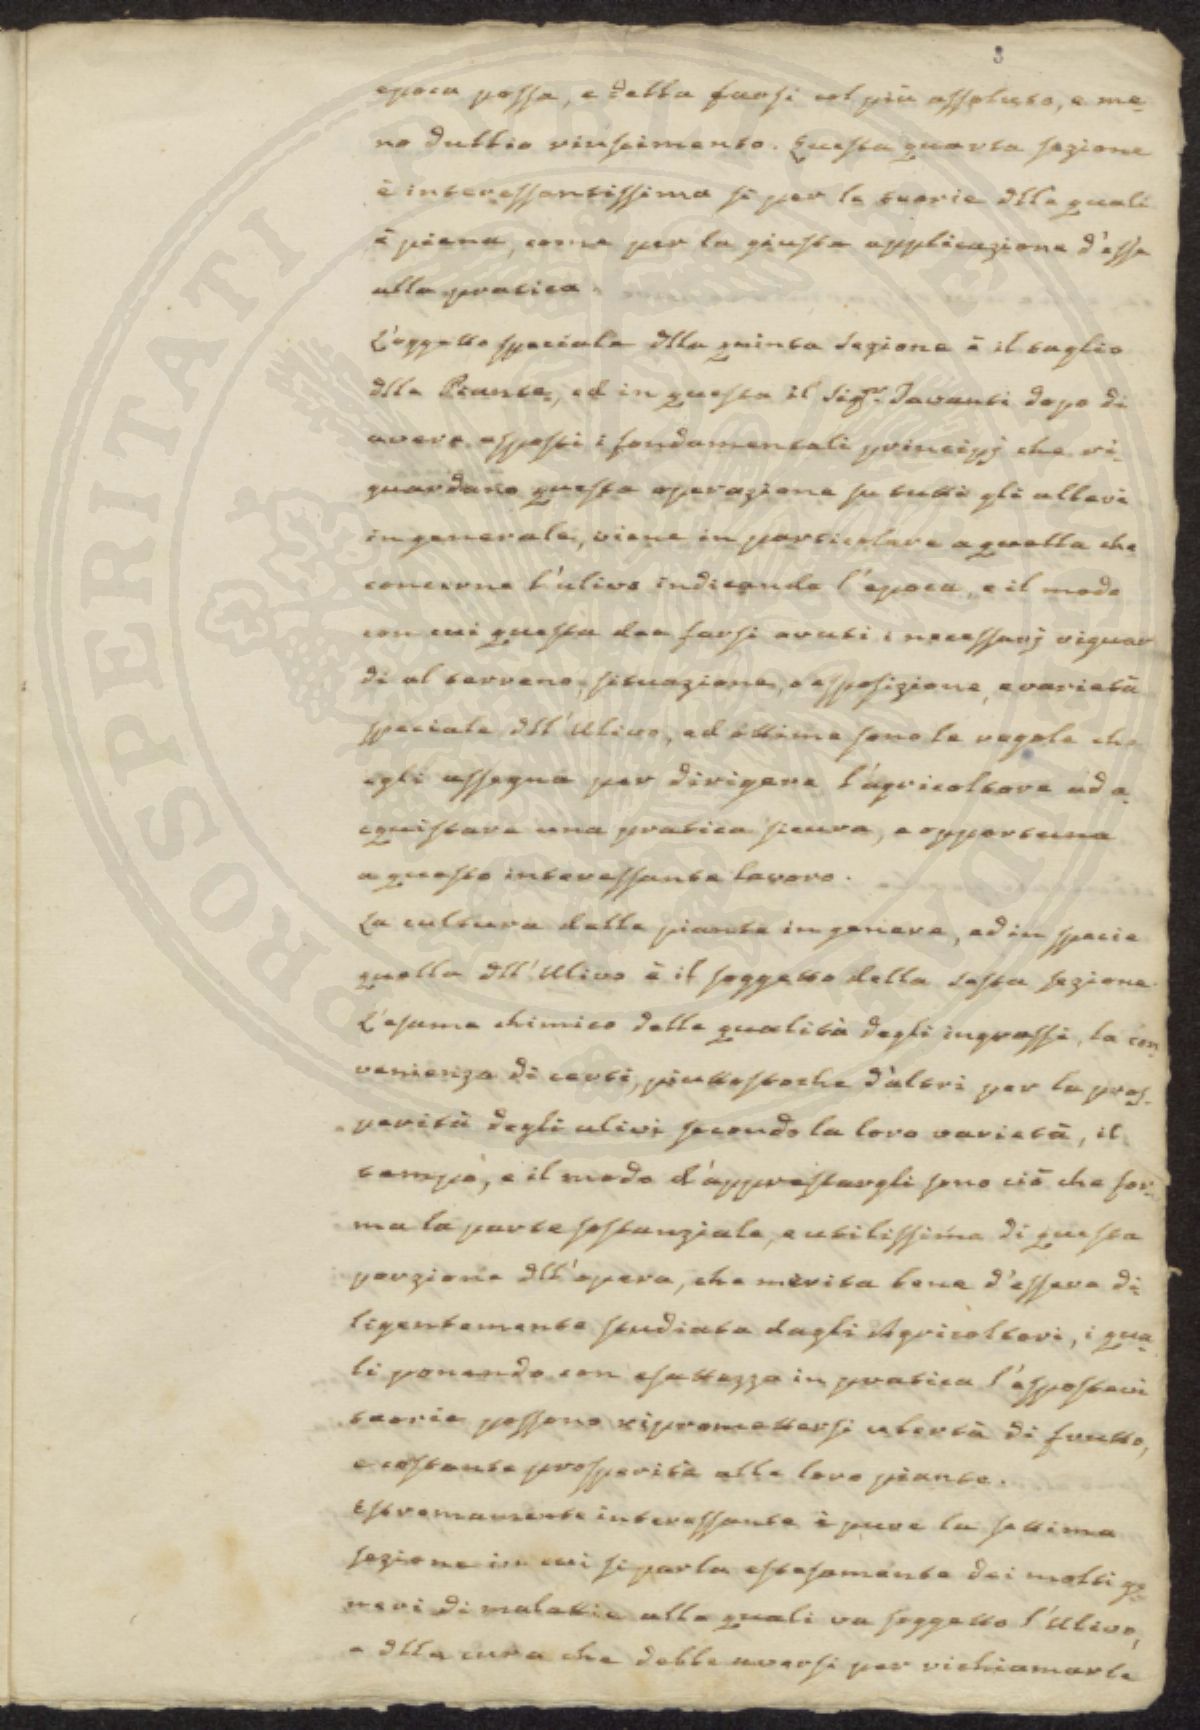 3
epoca possa, e debba farsi col più assoluto, e me-
no dubbio riuscimento. Questa quarta sezione
è interessantissima sì per le teorie dlle quali
è piena, come per la giusta applicazione d'esse
alla pratica.
L'oggetto speciale dlla quinta sezione è il taglio
dlle Piante, ed in questa il Sigr. Tavanti dopo di
avere esposti i fondamentali principj che ri-
guardano questa operazione su tutti gli alberi
in generale, viene in particolare a quella che
concerne l'ulivo indicando l'epoca, e il modo
con cui questa dee farsi avuti i necessarj riguar
di al terreno, situazione, e esposizione, e varietà
speciale dll'Ulivo, ed ottime sono le regole che
egli assegna per dirigere l'agricoltore ad a-
cquistare una pratica sicura, e opportuna
a questo interessante lavoro.
La cultura delle piante in genere, ed in specie
quella dll'Ulivo è il soggetto della sesta sezione.
L'esame chimico delle qualità degli ingrassi, la con-
venienza di certi, piuttostoche d'altri per la pros-
perità degli ulivi secondo la loro varietà, il
tempo, e il modo d'apprestargli sono ciò che for-
ma la parte sostanziale, e utilissima di questa
porzione dll'opera, che merita bene d'essere di-
ligentemente studiata dagli Agricoltori, i qua-
li ponendo con esattezza in pratica l'espostevi
teorie possono ripromettersi ubertà di frutto,
e costante prosperità alle loro piante.
Estremamente interessante è pure la settima
sezione in cui si parla estesamente dei molti ge-
neri di malattie alle quali va soggetto l'Ulivo,
e dlla cura che debbe aversi per richiamarle
PROSPERITATI PUBLICAE AUGENDAE